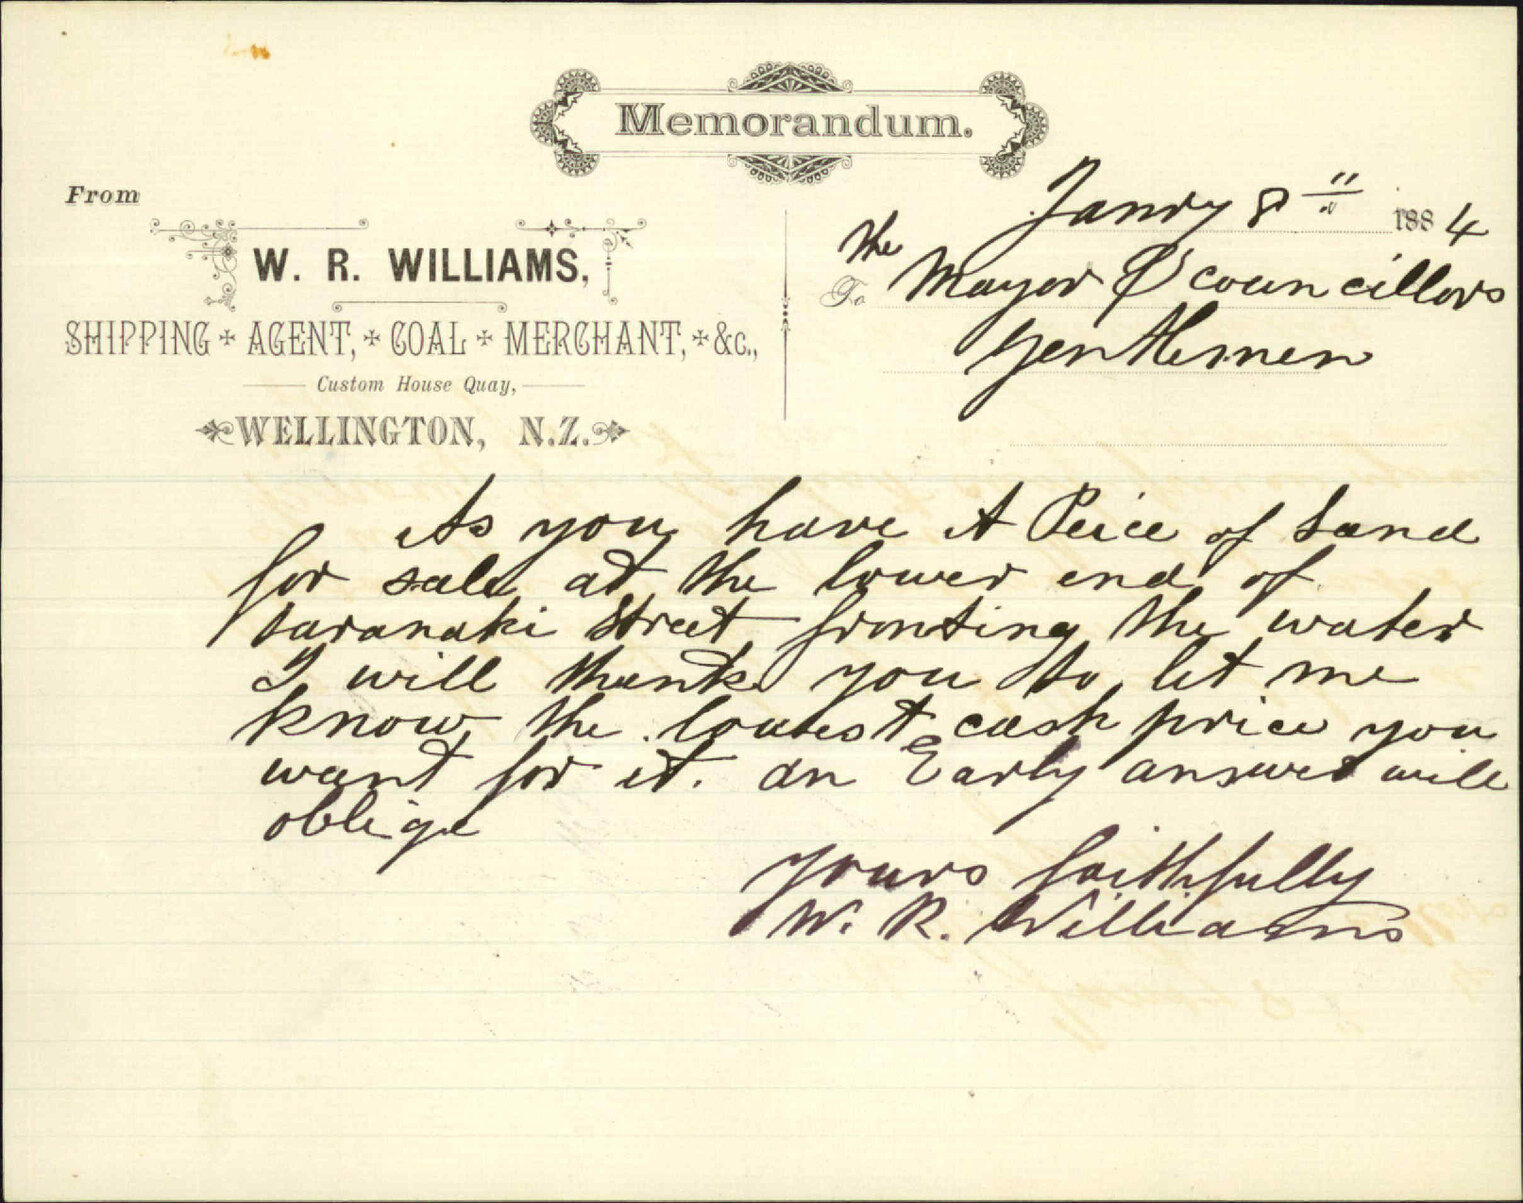 Memorandum.
From
W. R. WILLIAMS,
SHIPPING AGENT, COAL MERCHANT, &c.,
Custom House Quay,
WELLINGTON, N.Z.
Janry 8th 1884
The
To Mayor & councillors
Gentlemen
As you have A Peice of Land
for sale at the lower end of
taranaki Street fronting the water
I will thank you to let me
know the lowest cash price you
want for it. an Early answer will
oblige
yours faithfully
W. R. Williams